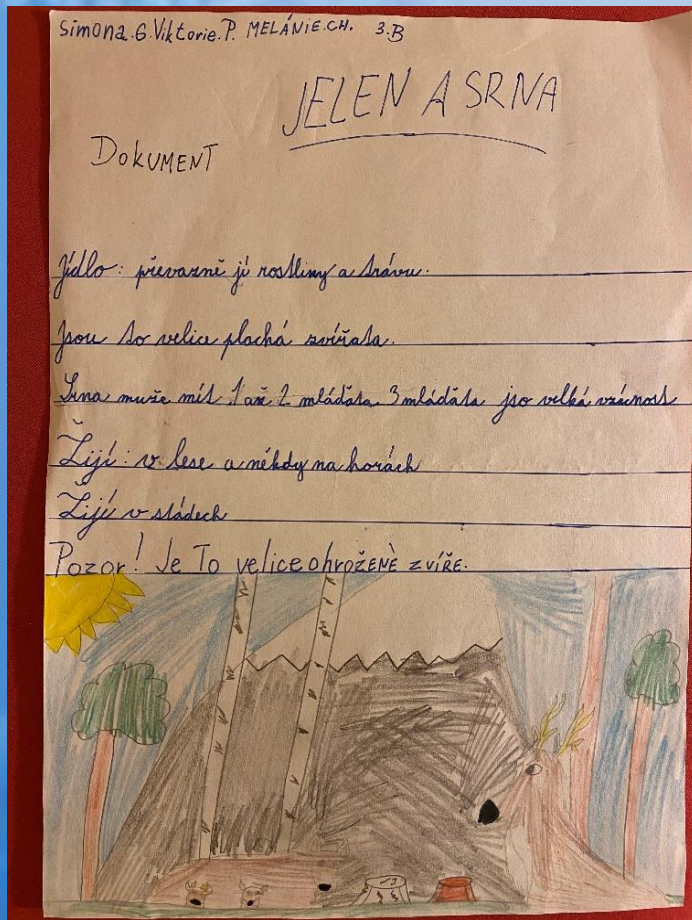 Simona.G.Viktorie.P. MELÁNIE.CH. 3.B
JELEN A SRNA
DOKUMENT
Jídlo: převazně jí rostliny a trávu.
Jsou to velice plachá zvířata.
Srna muže mít 1 až 2 mláďata. 3 mláďata jso velká vzácnost
Žijí: v lese a někdy na horách
Žijí v stádech
Pozor! Je To velice ohroženÈ zvíŘE.